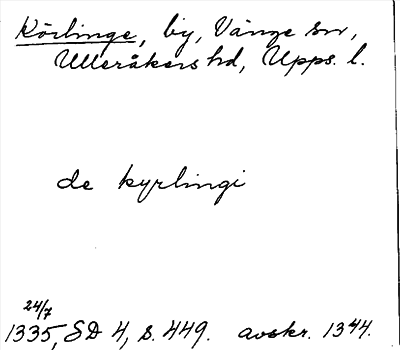 Körlinge, by, Vänge sn,
Ulleråkers hd, Upps. l.
de kyrlingi
24/7
1335, SD 4, s. 449. avskr. 1344.